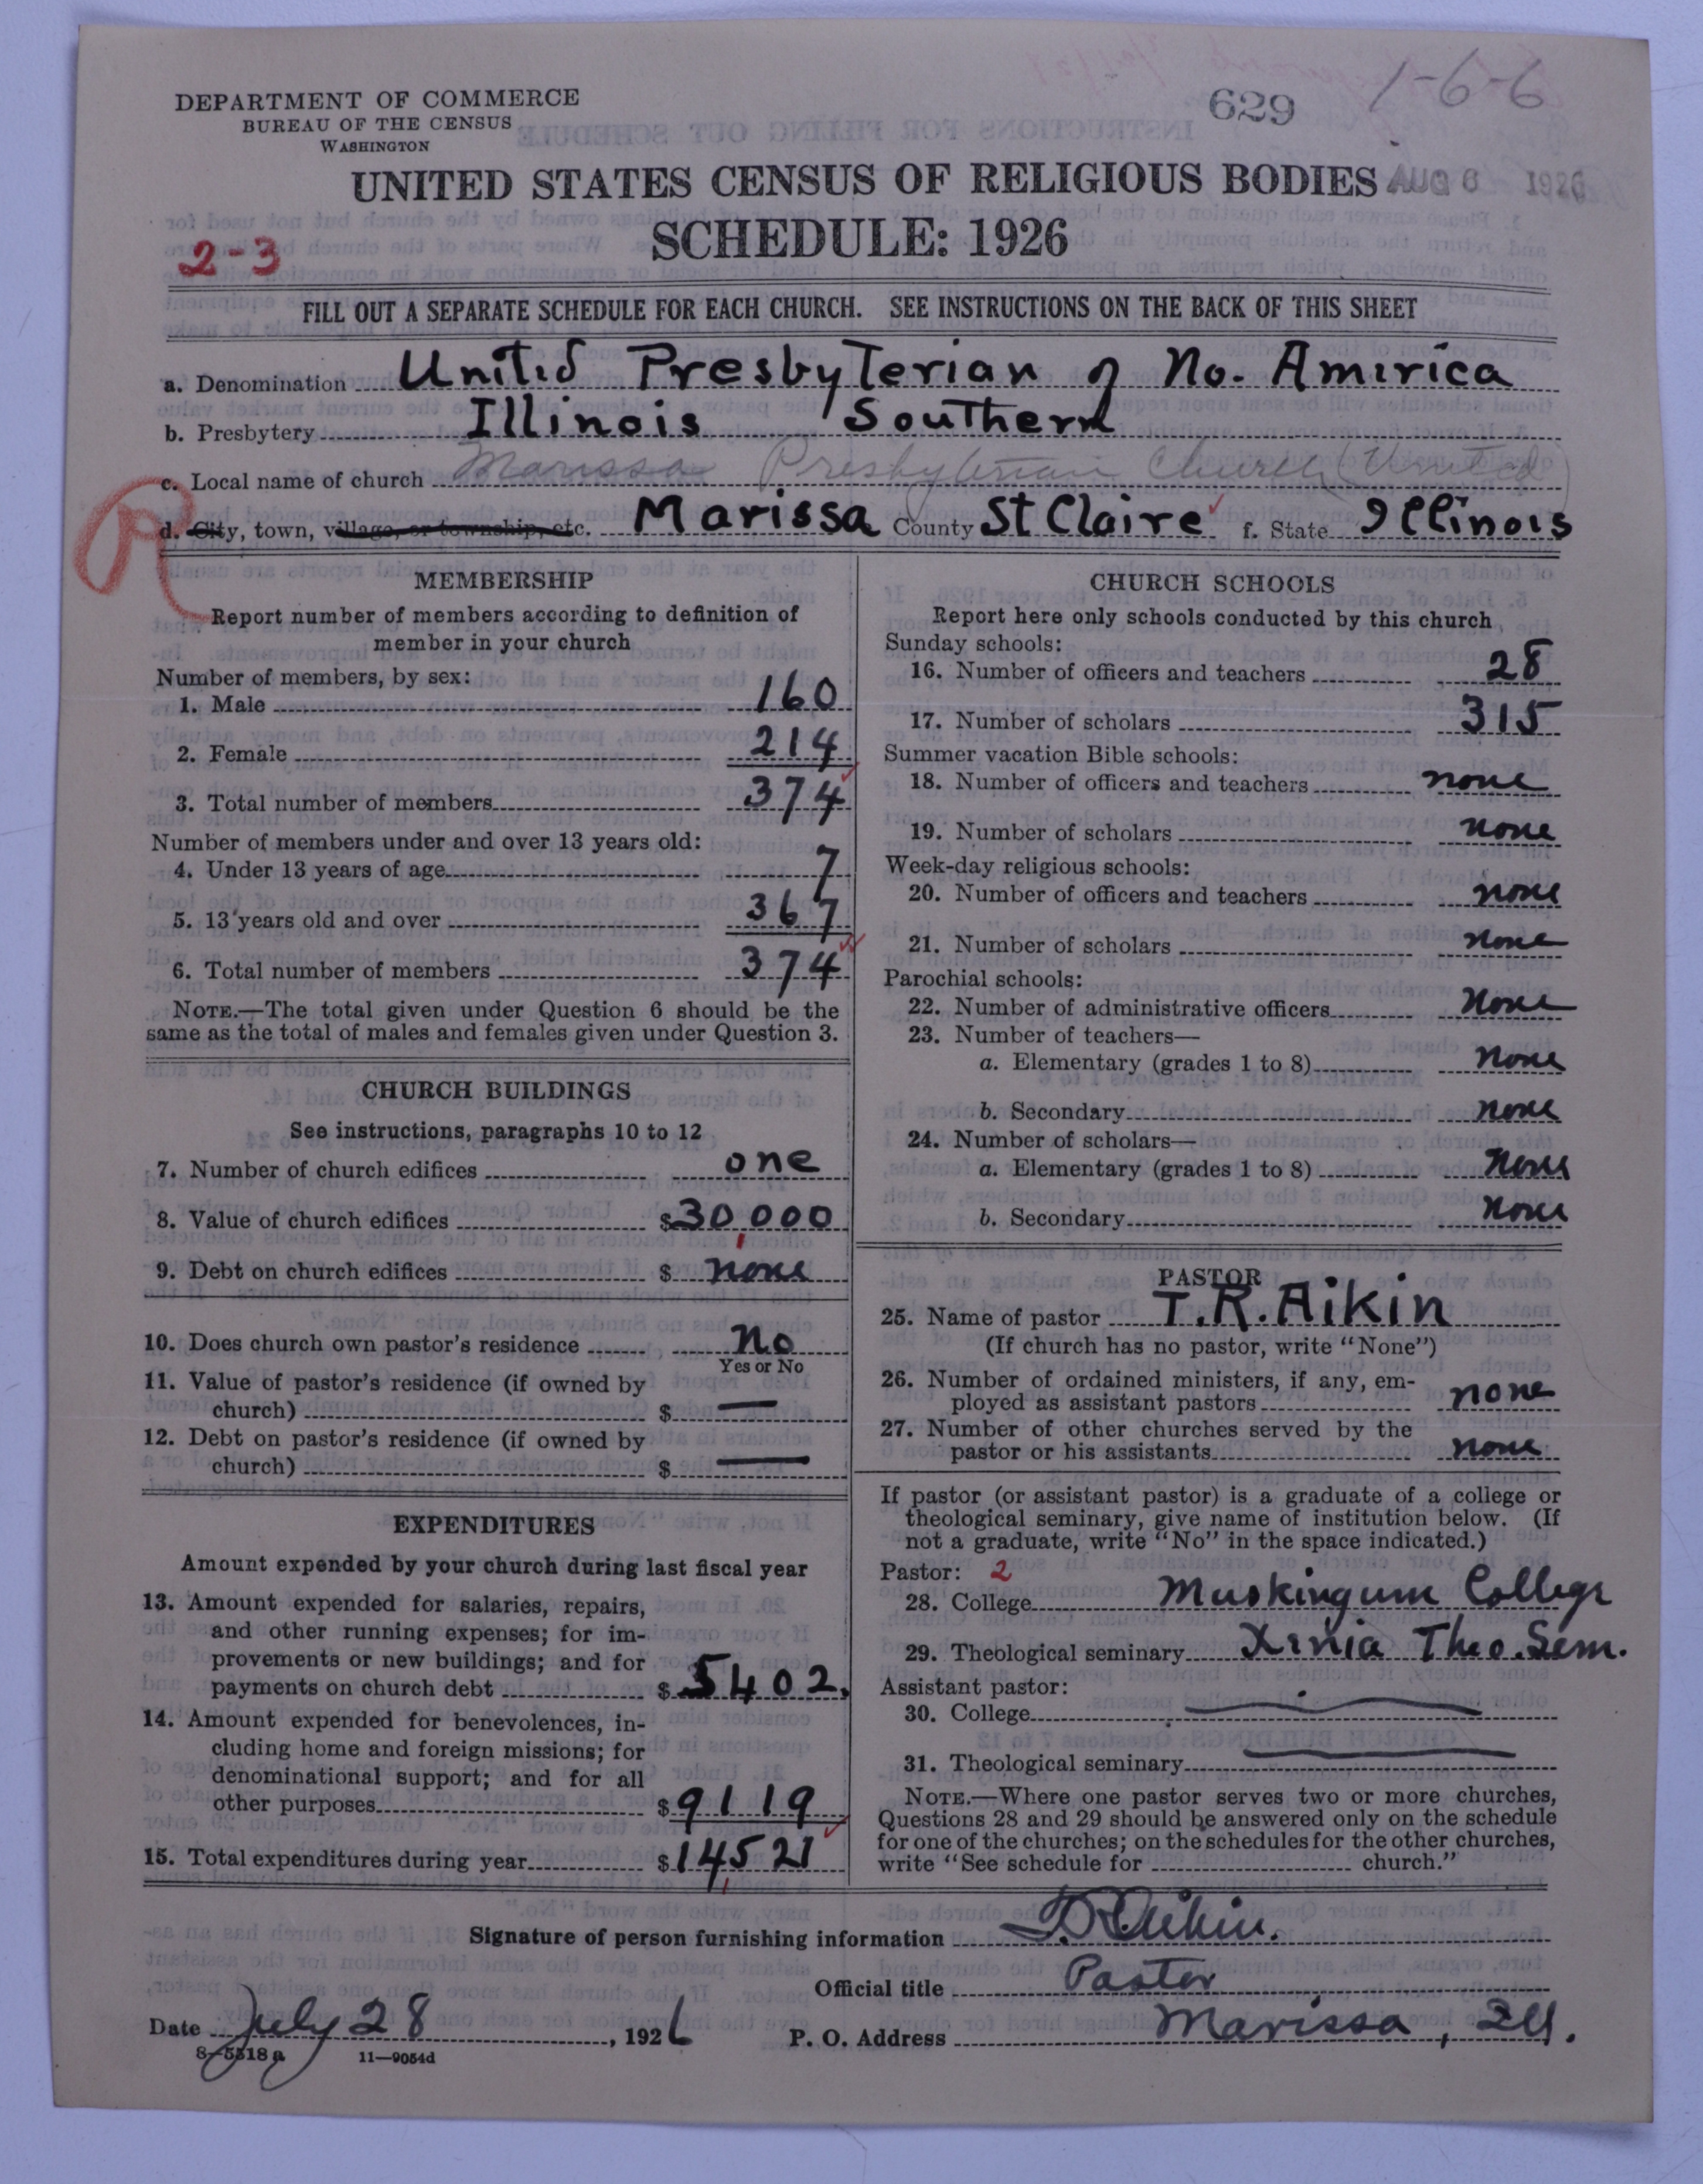 629 1-6-6
DEPARTMENT OF COMMERCE
BUREAU OF THE CENSUS
WASHINGTON
UNITED STATES CENSUS OF RELIGIOUS BODIES AUG 6 1926
SCHEDULE: 1926
2-3
FILL OUT A SEPARATE SCHEDULE FOR EACH CHURCH. SEE INSTRUCTIONS ON THE BACK OF THIS SHEET
a. Denomination United Presbyterian of No. America
b. Presbytery Illinois Southern
c. Local name of church Marissa Presbyterian Church (United)
R
d. City, town, village, or township, etc. Marissa County St Claire f. State Illinois
MEMBERSHIP
Report number of members according to definition of
member in your church
Number of members, by sex:
1. Male 160
2. Female 214
3. Total number of members 374
Number of members under and over 13 years old:
4. Under 13 years of age 7
5. 13 years old and over 367
6. Total number of members 374
NOTE.—The total given under Question 6 should be the
same as the total of males and females given under Question 3.
CHURCH BUILDINGS
See instructions, paragraphs 10 to 12
7. Number of church edifices one
8. Value of church edifices $30,000
9. Debt on church edifices $ none
10. Does church own pastor's residence no
Yes or No
11. Value of pastor's residence (if owned by
church) $ —
12. Debt on pastor's residence (if owned by
church) $ —
EXPENDITURES
Amount expended by your church during last fiscal year
13. Amount expended for salaries, repairs,
and other running expenses; for im-
provements or new buildings; and for
payments on church debt $ 5402.
14. Amount expended for benevolences, in-
cluding home and foreign missions; for
denominational support; and for all
other purposes $9119
15. Total expenditures during year $14521
CHURCH SCHOOLS
Report here only schools conducted by this church
Sunday schools:
16. Number of officers and teachers 28
17. Number of scholars 315
Summer vacation Bible schools:
18. Number of officers and teachers none
19. Number of scholars none
Week-day religious schools:
20. Number of officers and teachers none
21. Number of scholars none
Parochial schools:
22. Number of administrative officers none
23. Number of teachers—
a. Elementary (grades 1 to 8) none
b. Secondary none
24. Number of scholars—
a. Elementary (grades 1 to 8) none
b. Secondary none
PASTOR
25. Name of pastor T.R. Aikin
(If church has no pastor, write "None")
26. Number of ordained ministers, if any, em-
ployed as assistant pastors none
27. Number of other churches served by the
pastor or his assistants none
If pastor (or assistant pastor) is a graduate of a college or
theological seminary, give name of institution below. (If
not a graduate, write "No" in the space indicated.)
Pastor: 2
28. College Muskingum College
29. Theological seminary Xenia Theo. Sem.
Assistant pastor:
30. College —
31. Theological seminary —
NOTE.—Where one pastor serves two or more churches,
Questions 28 and 29 should be answered only on the schedule
for one of the churches; on the schedules for the other churches,
write "See schedule for ______ church."
Signature of person furnishing information T.R. Aikin.
Official title Pastor
Date July 28, 1926 P. O. Address Marissa, Ill.
8-5518 a 11-9054d